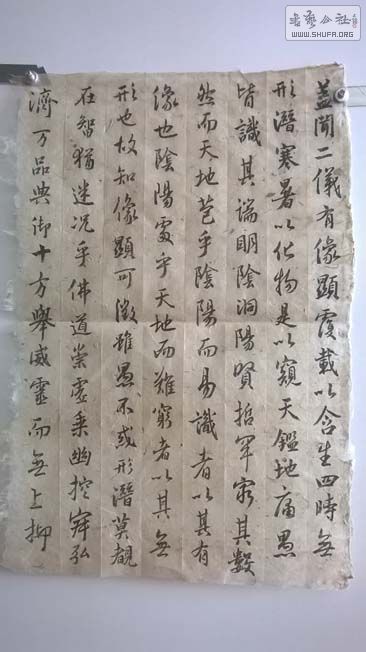 書藝公社
WWW.SHUFA.ORG
蓋聞二儀有像顯覆載以含生四時無
形潛寒暑以化物是以窺天鑑地庸愚
皆識其端明陰洞陽賢哲罕窮其數
然而天地苞乎陰陽而易識者以其有
像也陰陽處乎天地而難窮者以其無
形也故知像顯可徵雖愚不或形潛莫覩
在智猶迷況乎佛道崇虛乘幽控寂弘
濟万品典御十方舉威靈而無上抑